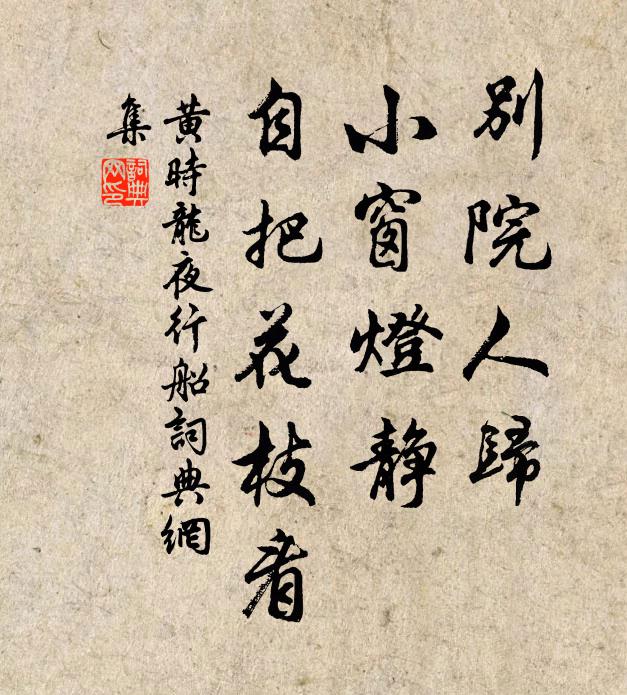 別院人歸
小窗燈靜
自把花枝看
黄時龍夜行船詞典網
集
詞典
网印